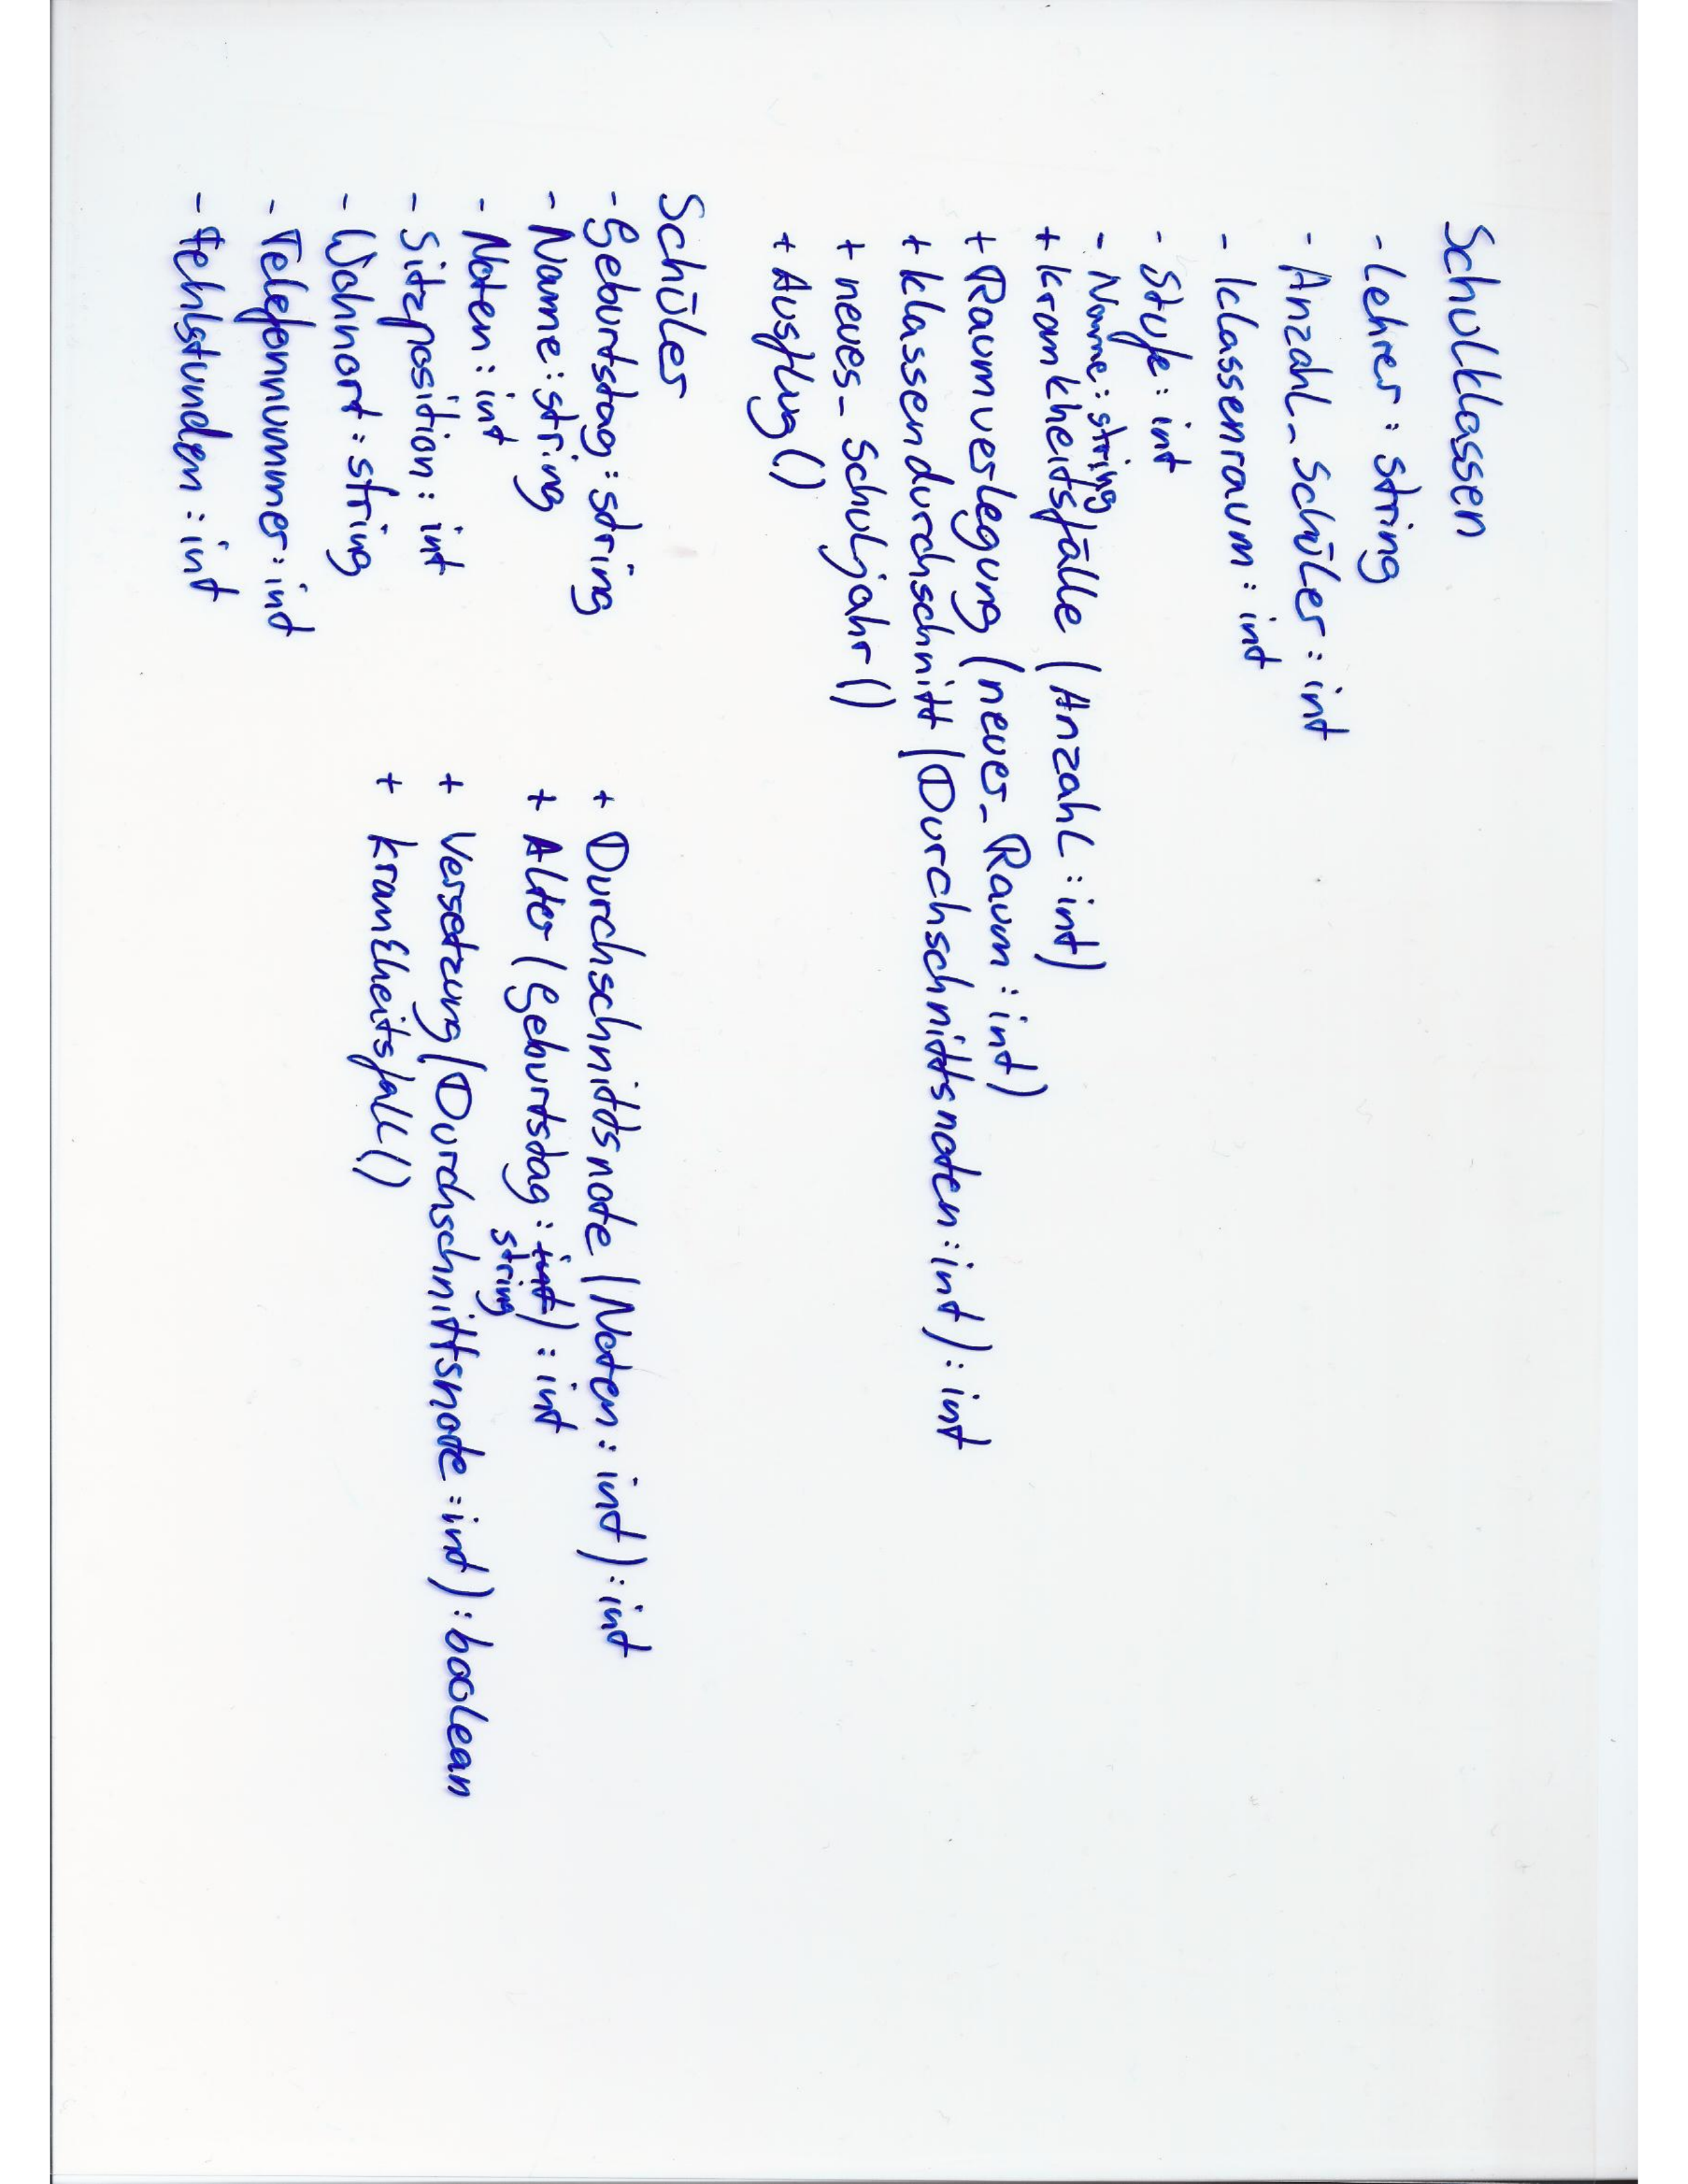 Schulklassen
- Lehrer : string
- Anzahl_Schüler : int
- Klassenraum : int
- Stufe : int
- Name : string
+ Krankheitsfälle (Anzahl : int)
+ Raumverlegung (neuer_Raum : int)
+ Klassendurchschnitt (Durchschnittsnoten : int) : int
+ neues_Schuljahr ()
+ Ausflug ()
Schüler
- Geburtstag : string
- Name : string
- Noten : int
- Sitzposition : int
- Wohnort : string
- Telefonnummer : int
- Fehlstunden : int
+ Durchschnittsnote (Noten : int) : int
+ Alter (Geburtstag : int) : int
string
+ Versetzung (Durchschnittsnote : int) : boolean
+ Krankheitsfall ()